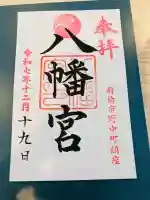 奉拝
前橋市野中町鎮座
八幡宮
令和七年十二月
十九日